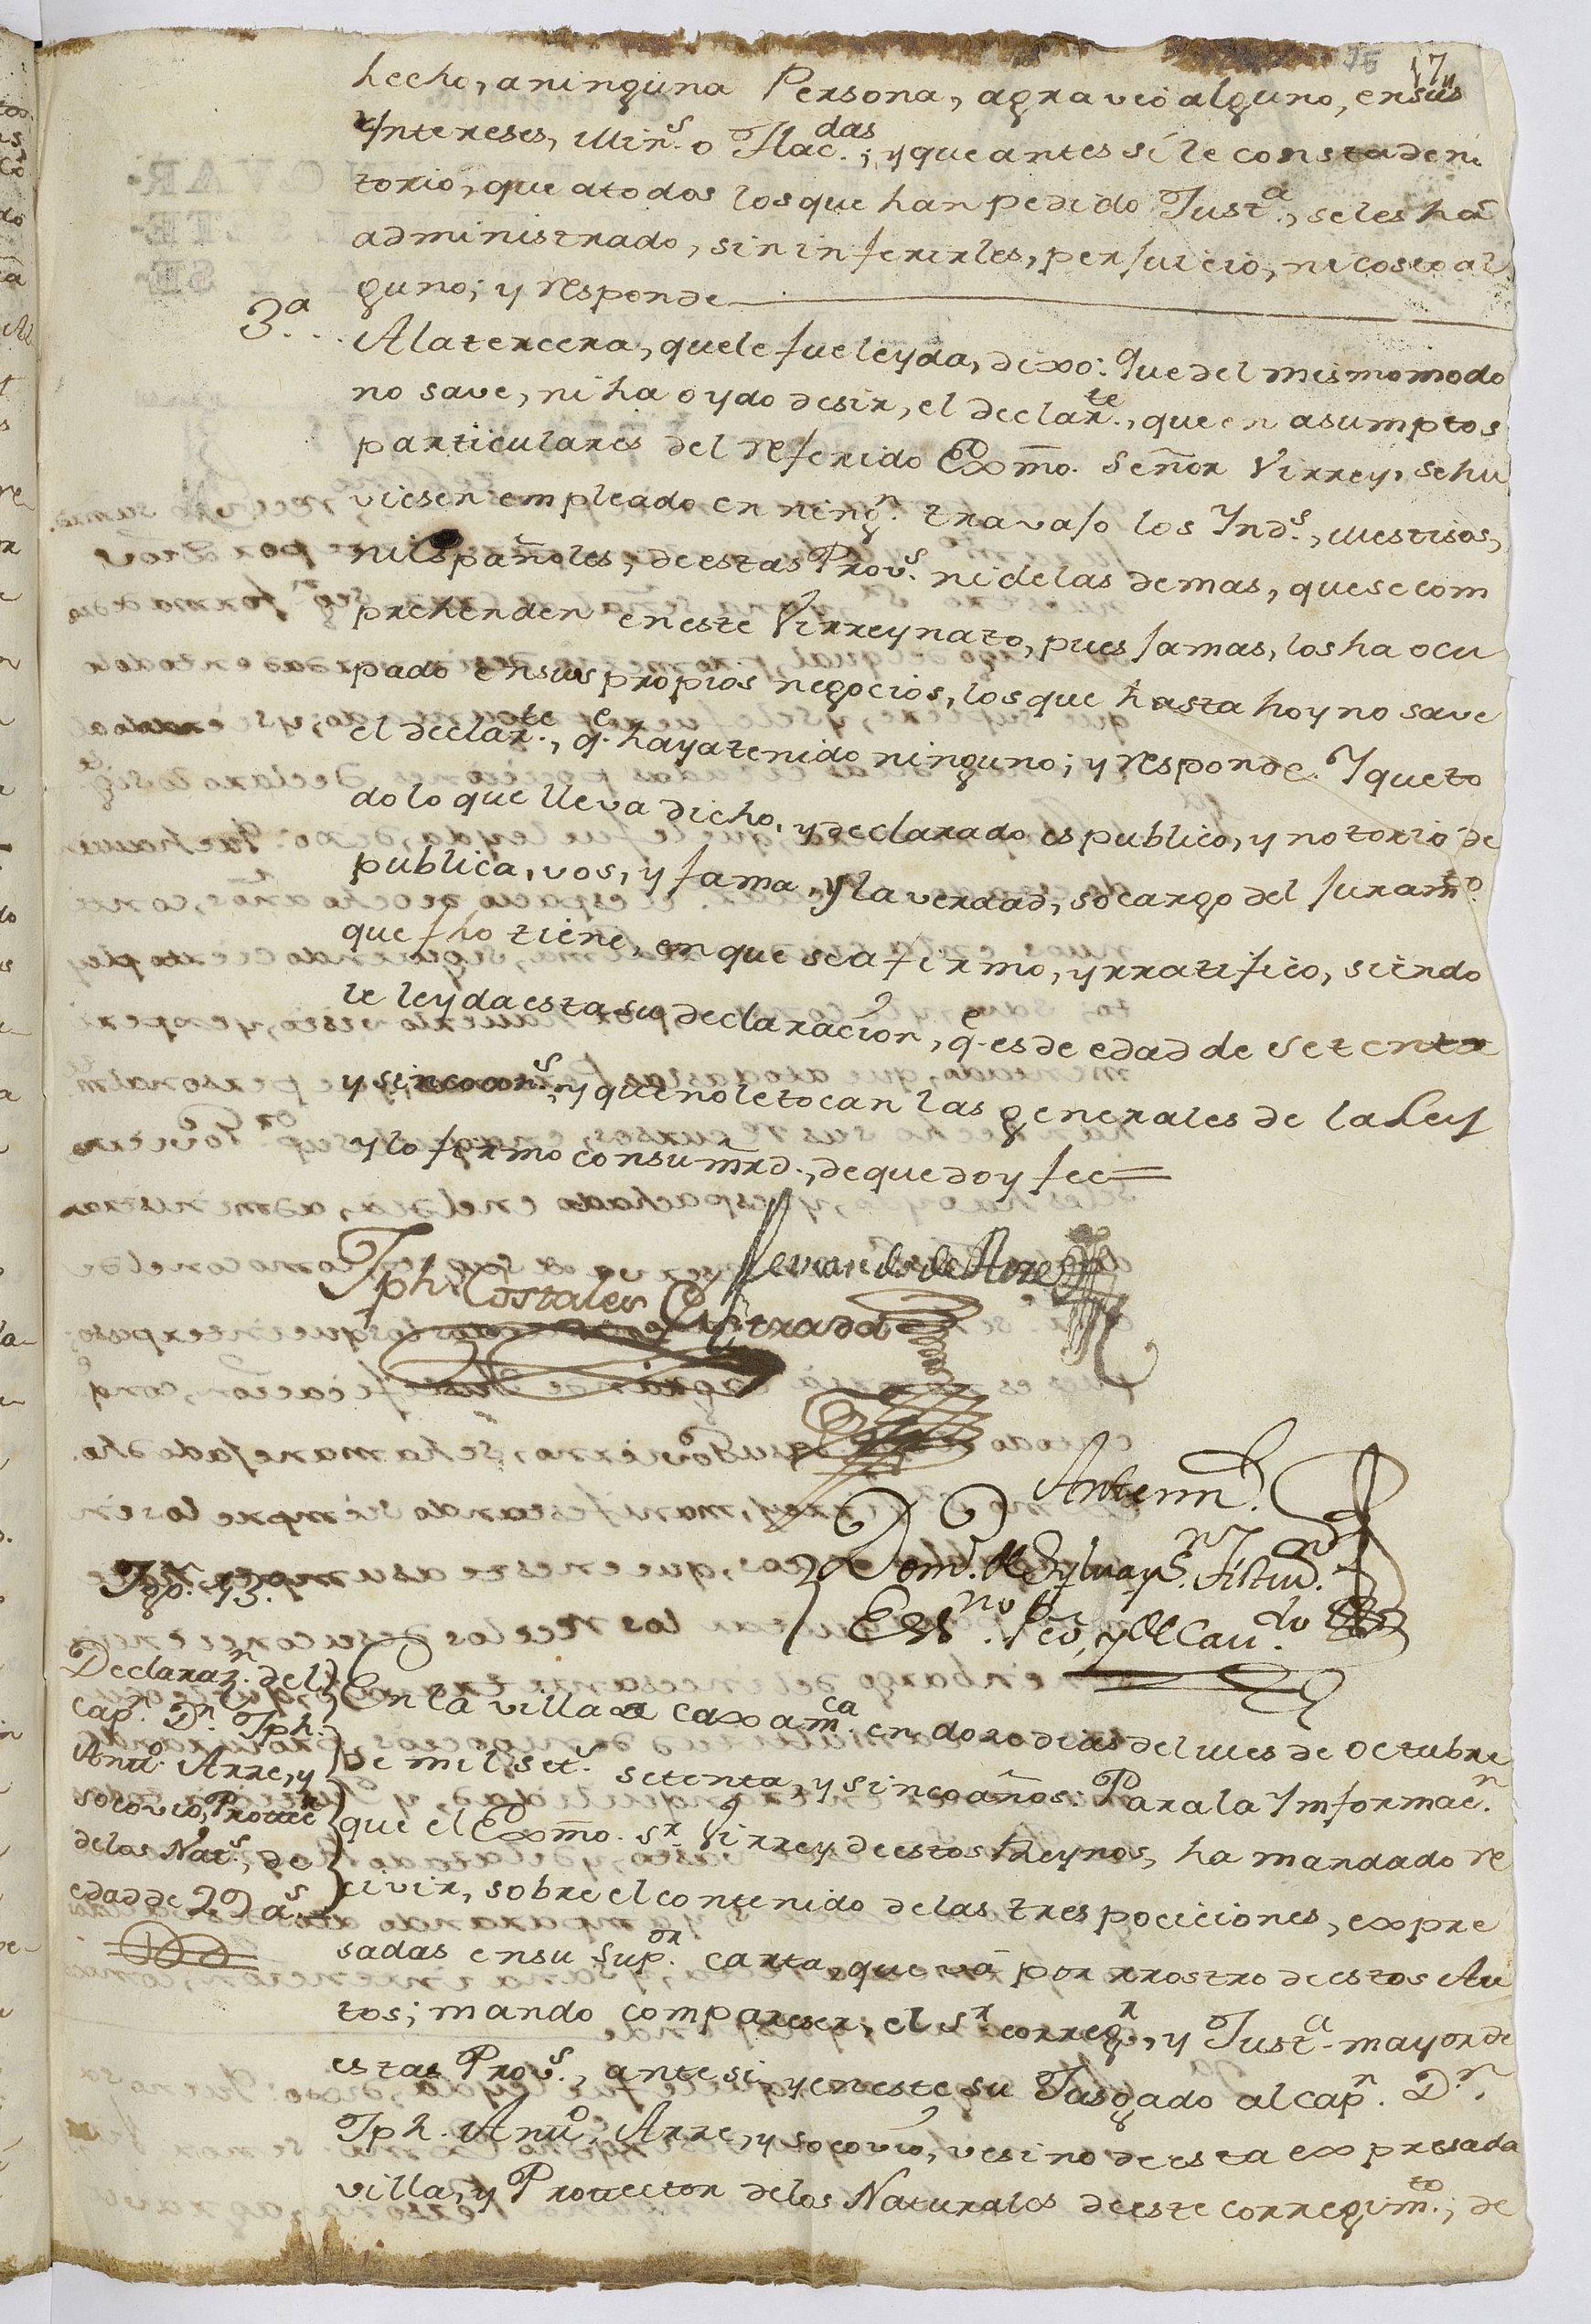 17
hecho, a ninguna Persona, agravio alguno, en sus
Yntereses, Min.s o Hac.das; y que antes sí le consta de no
torio, que a todos los que han pedido Just.a, se les ha
administrado, sin inferirles, perjuicio, ni costo al
guno; y responde
3.a A la tercera, que le fue leyda, dixo: Que del mismo modo
no save, ni ha oydo desir, el declar.te, que en asumptos
particulares del referido Exmo. Señor Virrey, se hu
viesen empleado en ning.n travajo los Ynd.s, Mestisos,
ni Españoles, de estas Prov.s ni de las demas, que se com
prehenden en este Virreynato, pues jamas, los ha ocu
pado en sus propios negocios, los que hasta hoy no save
el declar.te, q.e haya tenido ninguno; y responde. Y que to
do lo que lleva dicho, y declarado es publico, y notorio de
publica, vos, y fama, y la verdad, so cargo del juram.to
que fho tiene, en que se afirmo, y rratifico, siendo
le leyda esta su declaracion, q.e es de edad de setenta
y sinco an.s, y que no le tocan las generales de la Ley
y lo firmo con su mrd., de que doy fee=
Jph. Costales Estrada
Ante mi
Dom.o de Sylva y
Ess.no pco, y de Cav.do
Tgo. 13.
Declaraz.n del
Cap.n D.n Jph.
Ant.o Arre, y
socovio, Protter
de los Nat.s, de
edad de 29 a.s
En la villa de Caxam.ca en doze dias del mes de Octubre
de mil set.s setenta, y sinco años: Para la Ynformac.n
que el Exmo. S.r Virrey de estos Reynos, ha mandado re
civir, sobre el contenido de las tres pociciones, expre
sadas en su Sup.or carta, que vá por rrostro de estos Au
tos; mando compareser, el S.r correg.r, y Just.a mayor de
estas Prov.s, ante si, y en este su Jusgado al Cap.n D.n
Jph. Ant.o Arre, y socovio, vesino de esta expresada
villa, y Protector de los Naturales de este corregim.to; de